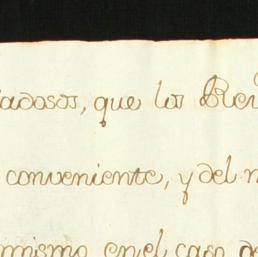 adosos, que los Rei
conveniente, y del n
mismo en el caso de